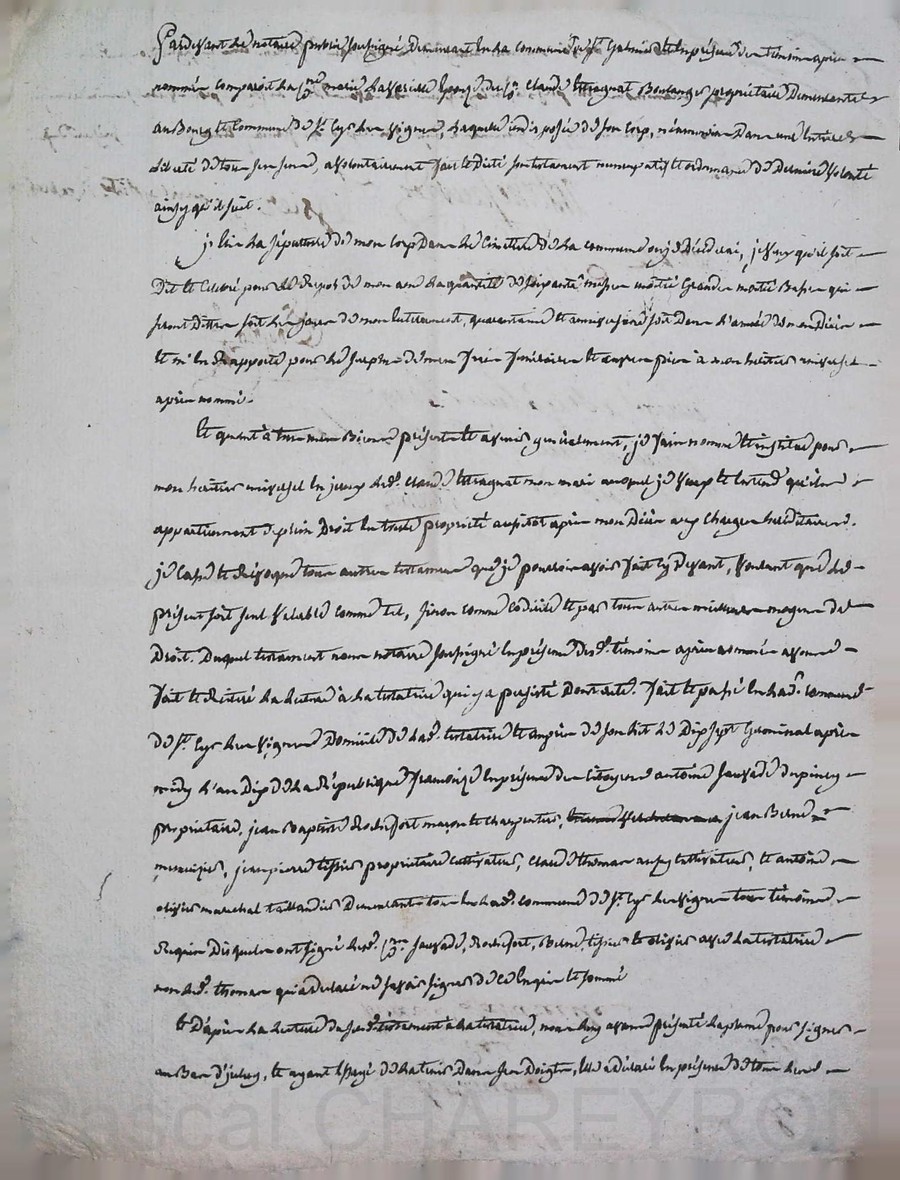 Pardevant le notaire public soussigné Demeurant en la commune de St Galmier et en présence des témoins après
nommés comparoit la Sne marie Laverrière Epouze du Sr. Claude Boulanger propriétaire Demeurante
au Bourg et Commune de St. Cyr les vignes, laquelle indisposée de son corp, néanmoins Dans une entière
liberté de tous ses sens, a volontairement fait et Dicté son testament nuncupatif et ordonnance de Dernière Volonté
ainsy qu'il suit.
je élis la sépulture de mon corp Dans le Cimetière de la commune ou je Décèderai, je veux qu'il soit
Dit et Célébré pour le repos de mon ame la quantité de soixante messes moitié Grandes moitié Basses qui
seront Dittes soit les jours de mon enterrement, quarantaine et anniversaire soit Dans l'année de mon Décès
et m'en rapporte pour le surplus de mes frais funéraires et œuvres pies à mon héritier universel
après nommé.
Et quant à tous mes Biens présents et avenir généralement, je fais nomme et institue pour
mon héritier universel led. Claude mon mari auquel je veux et entend qu'ils
appartiennent de plein Droit en toute propriété aussitot après mon Décès aux charges héréditaires.
je casse et révoque tous autres testaments que je pourrois avoir fait cy Devant, voulant que le
présent soit seul valable comme tel, sinon comme codicile et par tous autres moyens de
Droit. Duquel testament nous notaire soussigné en présence desd. témoins après nommés avons
fait et réitéré la lecture à la testatrice qui y a persisté Dont acte. fait et passé en lad. commune
de St. Cyr les vignes Domicile de lad. testatrice et auprès de son lit le Dix sept Germinal après
midy l'an Dix de la République française en présence des citoyens antoine Sauzade Dupiney
propriétaire, jean Baptiste Rochefort maçon et charpentier, jean
jean pierre tissier propriétaire cultivateur, Claude thomas aussy cultivateur, et antoine
olivier maréchal taillandier Demeurants tous en lad. commune de St. Cyr les vignes tous témoins
Requis Desquels ont signé lesd. Srs. Sauzade, Rochefort, tissier et olivier avec la testatrice
non led. thomas qui a déclaré ne savoir signer de ce enquis et sommé
et D'après la lecture du susd. testament à la testatrice, nous luy avons présenté la plume pour signer
au Bas d'iceluy, et ayant essayé de la tenir Dans ses Doigts, elle a déclaré en présence de tous lesd.
Pascal CHAREYRON